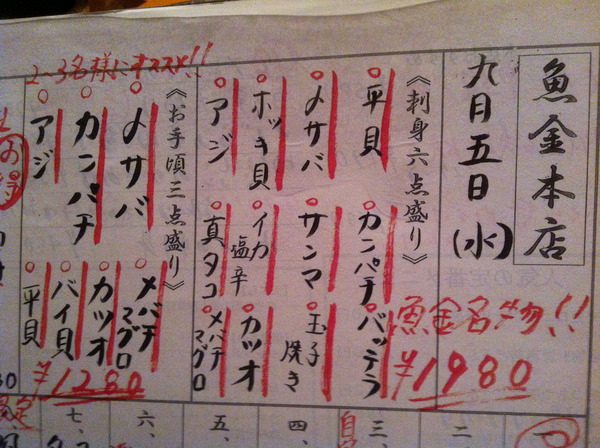 魚金本店
九月五日(水)
魚金名物!!
¥1980
《刺身六点盛り》
平貝
カンパチ
バッテラ
〆サバ
サンマ
玉子焼き
ホッキ貝
イカ塩辛
カツオ
アジ
真タコ
メバチマグロ
2〜3名様にオススメ!!
《お手頃三点盛り》
〆サバ
メバチマグロ
カンパチ
カツオ
バイ貝
アジ
平貝
¥1280
二、
三、
四、
五、
六、
七、